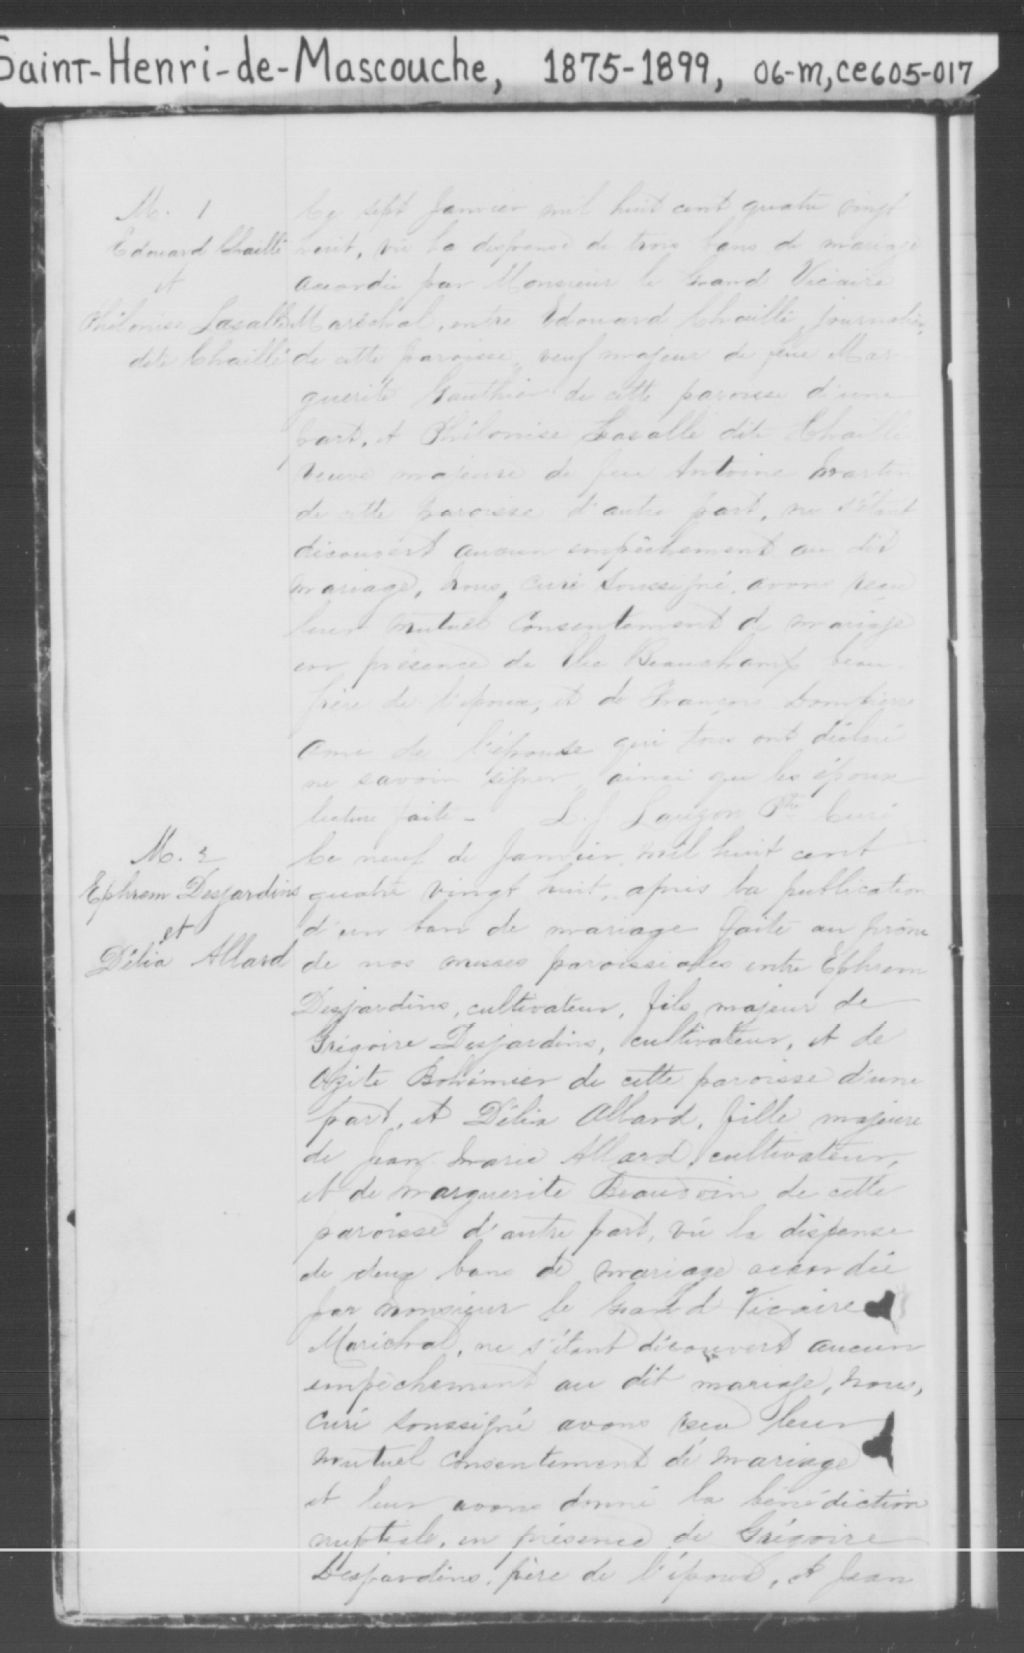 Saint-Henri-de-Mascouche, 1875-1899, 06-M,CE605-017
M. 1
Edouard Chaillé
et
Philonise Lasalle
dite Chaillé
Ce sept Janvier mil huit cent quatre vingt
huit, vu la dispense de trois bans de mariage
accordée par Monsieur le Grand Vicaire
Maréchal, entre Edouard Chaillé, Journalier,
de cette paroisse, veuf majeur de feue Mar
guerite Gauthier de cette paroisse d'une
part, et Philonise Lasalle dite Chaillé
veuve majeure de feu Antoine Martin
de cette paroisse d'autre part, ne s'étant
découvert aucun empêchement au dit
mariage, nous, curé soussigné, avons reçu
leur mutuel consentement de mariage
en présence de Beauchamp beau
frère de l'époux, et de François
ami de l'épouse qui tous ont déclaré
ne savoir signer, ainsi que les époux
lecture faite - L. J. Lauzon Ptre Curé
M. 2
Ephrem Desjardins
et
Délia Allard
Ce neuf de Janvier mil huit cent
quatre vingt huit, après la publication
d'un ban de mariage faite au prône
de nos messes paroissiales entre Ephrem
Desjardins, cultivateur, fils majeur de
Grégoire Desjardins, cultivateur, et de
Ozite Bohémier de cette paroisse d'une
part, et Délia Allard, fille majeure
de Jean Marie Allard, cultivateur,
et de Marguerite Beaudoin de cette
paroisse d'autre part, vu la dispense
de deux bans de mariage accordée
par Monsieur le Grand Vicaire
Maréchal, ne s'étant découvert aucun
empêchement au dit mariage, nous,
curé soussigné avons reçu leur
mutuel consentement de mariage
et leur avons donné la bénédiction
nuptiale, en présence de Grégoire
Desjardins, père de l'époux, et Jean